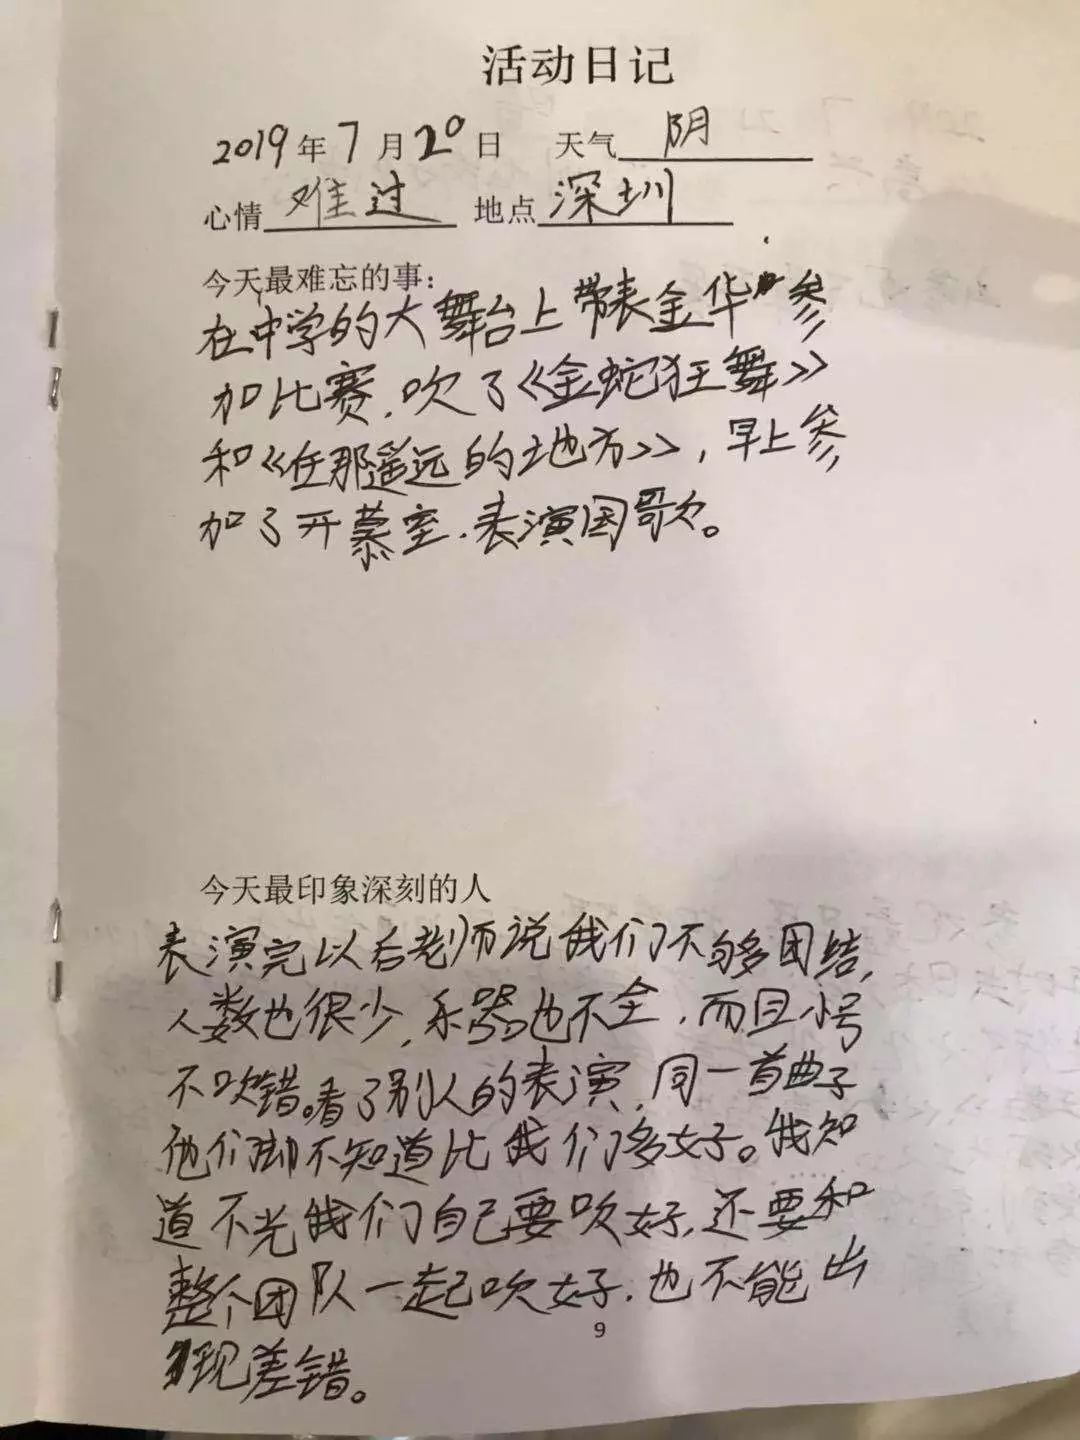 活动日记
2019年7月20日 天气 阴
心情 难过 地点 深圳
今天最难忘的事：
在中学的大舞台上带表金华参
加比赛，吹了《金蛇狂舞》
和《在那遥远的地方》，早上参
加了开慕室，表演国歌。
今天最印象深刻的人
表演完以后老师说我们不够团结，
人数也很少，乐器也不全，而且小号
不吹错。看了别人的表演，同一首曲子
他们脚不知道比我们多好。我知
道不光我们自己要吹好，还要和
整个团队一起吹好，也不能出
现差错。
9